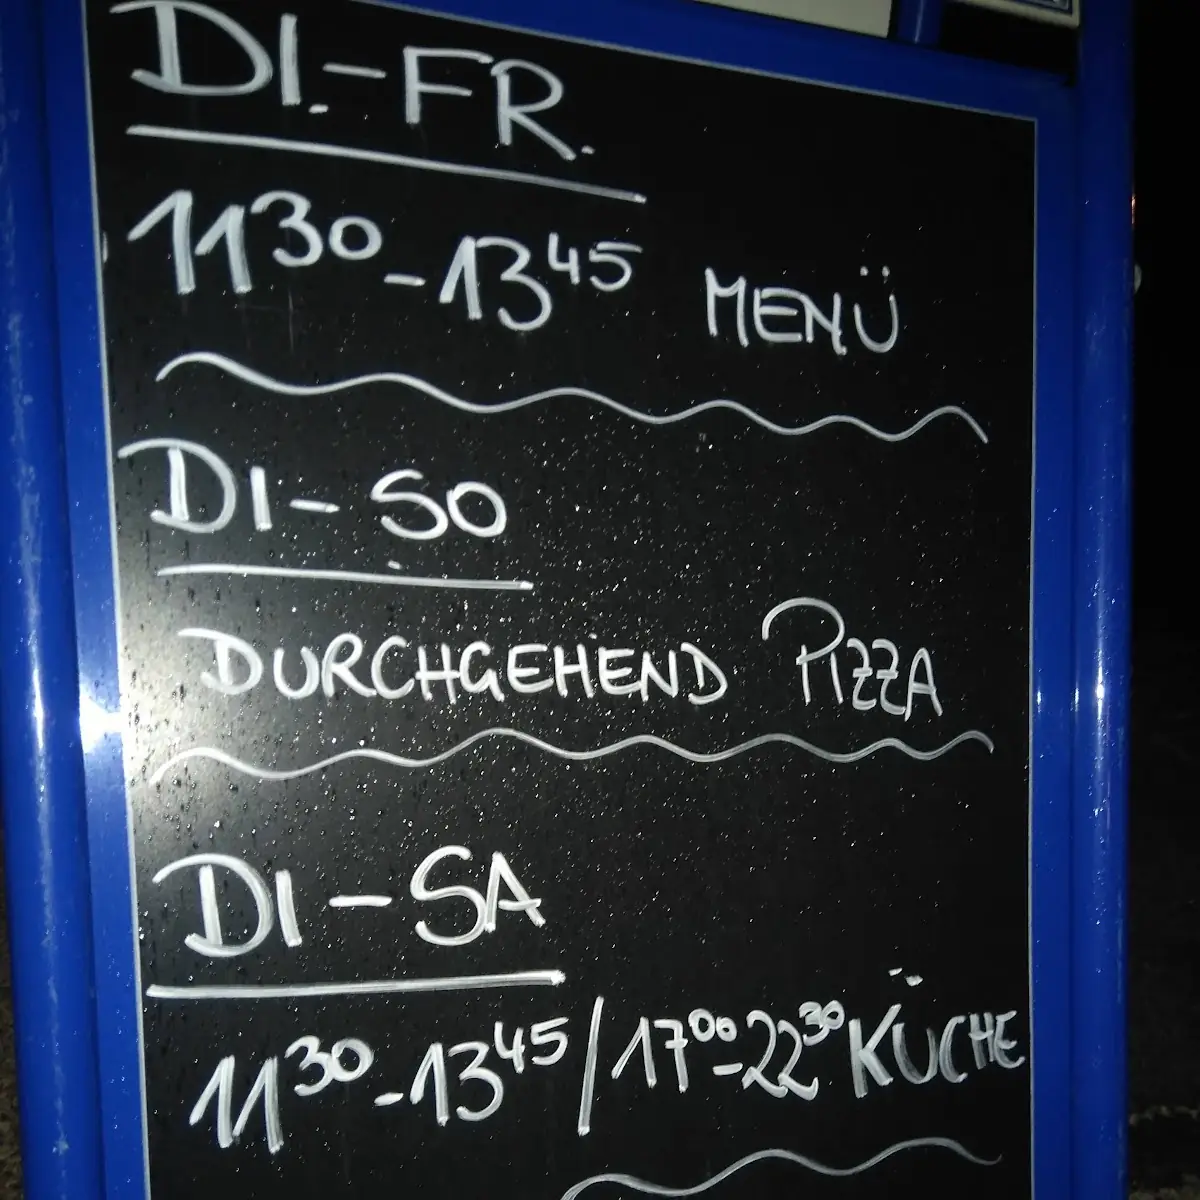 DI.-FR.
11³⁰-13⁴⁵ MENÜ
DI-SO
DURCHGEHEND PIZZA
DI-SA
11³⁰-13⁴⁵/17⁰⁰-22³⁰ KÜCHE